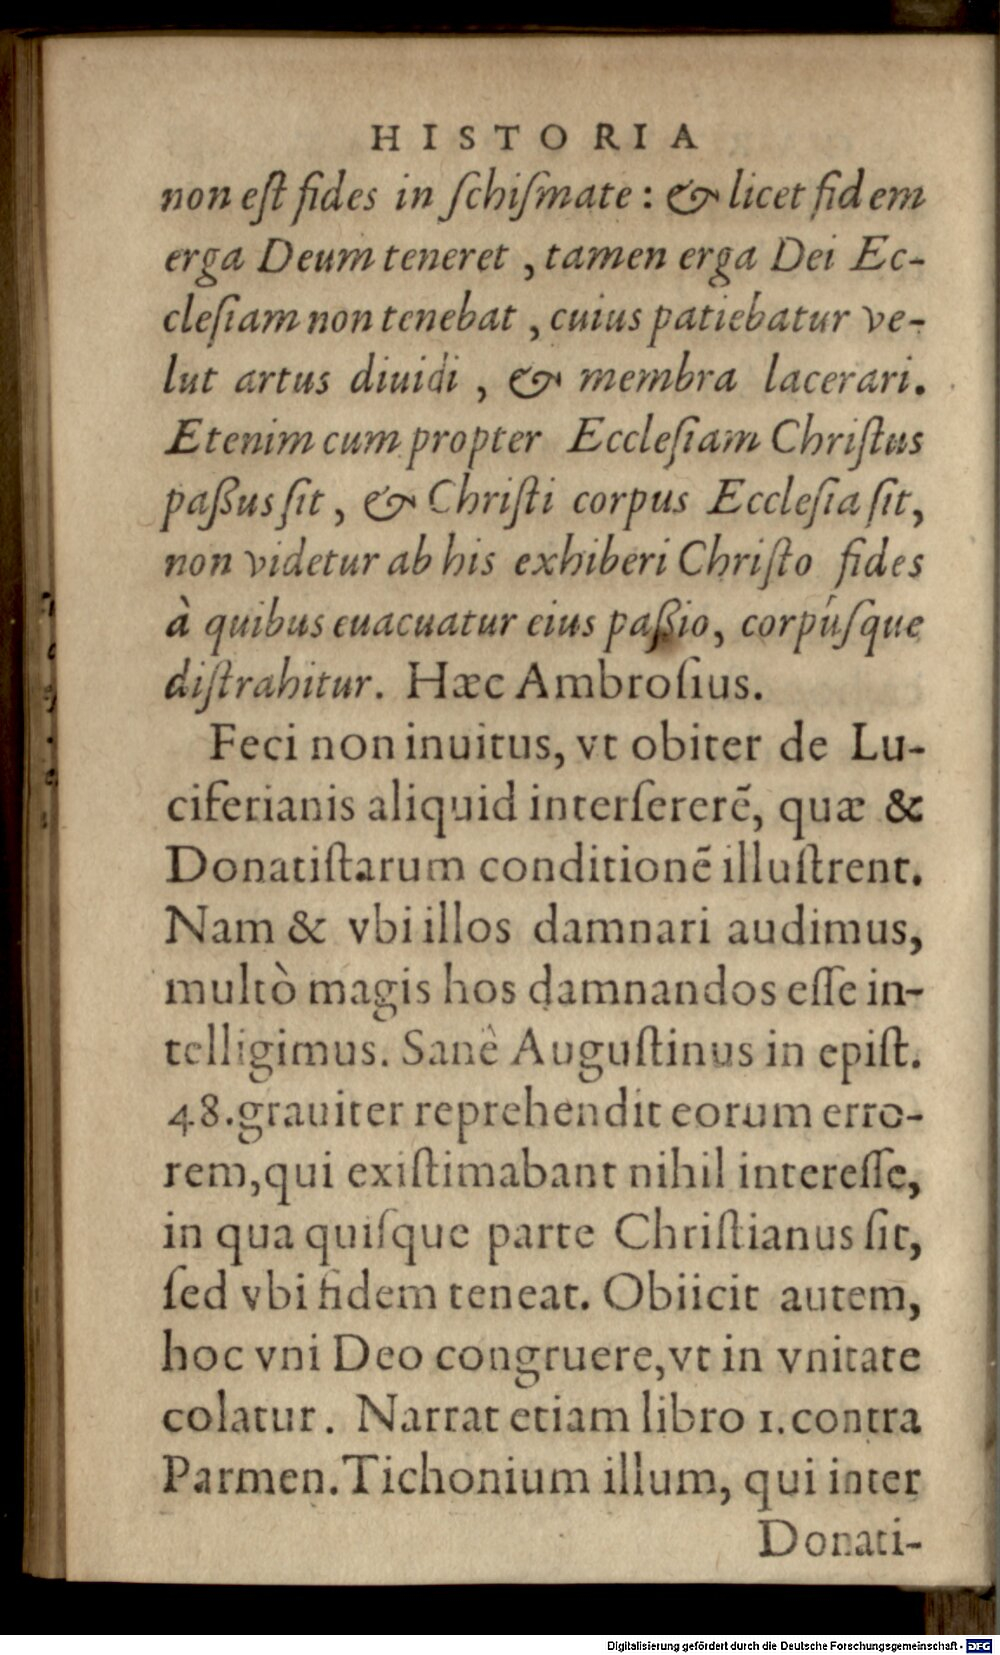 HISTORIA
non eſt fides in ſchiſmate: & licet fidem
erga Deum teneret, tamen erga Dei Ec-
cleſiam non tenebat, cuius patiebatur ve-
lut artus diuidi, & membra lacerari.
Etenim cum propter Eccleſiam Chriſtus
paßus ſit, & Chriſti corpus Eccleſia ſit,
non videtur ab his exhiberi Chriſto fides
à quibus euacuatur eius paßio, corpúſque
diſtrahitur. Hæc Ambroſius.
Feci non inuitus, vt obiter de Lu-
ciferianis aliquid interſererẽ, quæ &
Donatiſtarum conditionẽ illuſtrent.
Nam & vbi illos damnari audimus,
multò magis hos damnandos eſſe in-
telligimus. Sanè Auguſtinus in epiſt.
48. grauiter reprehendit eorum erro-
rem, qui exiſtimabant nihil intereſſe,
in qua quiſque parte Chriſtianus ſit,
ſed vbi fidem teneat. Obiicit autem,
hoc vni Deo congruere, vt in vnitate
colatur. Narrat etiam libro 1. contra
Parmen. Tichonium illum, qui inter
Donati-
Digitalisierung gefördert durch die Deutsche Forschungsgemeinschaft - DFG